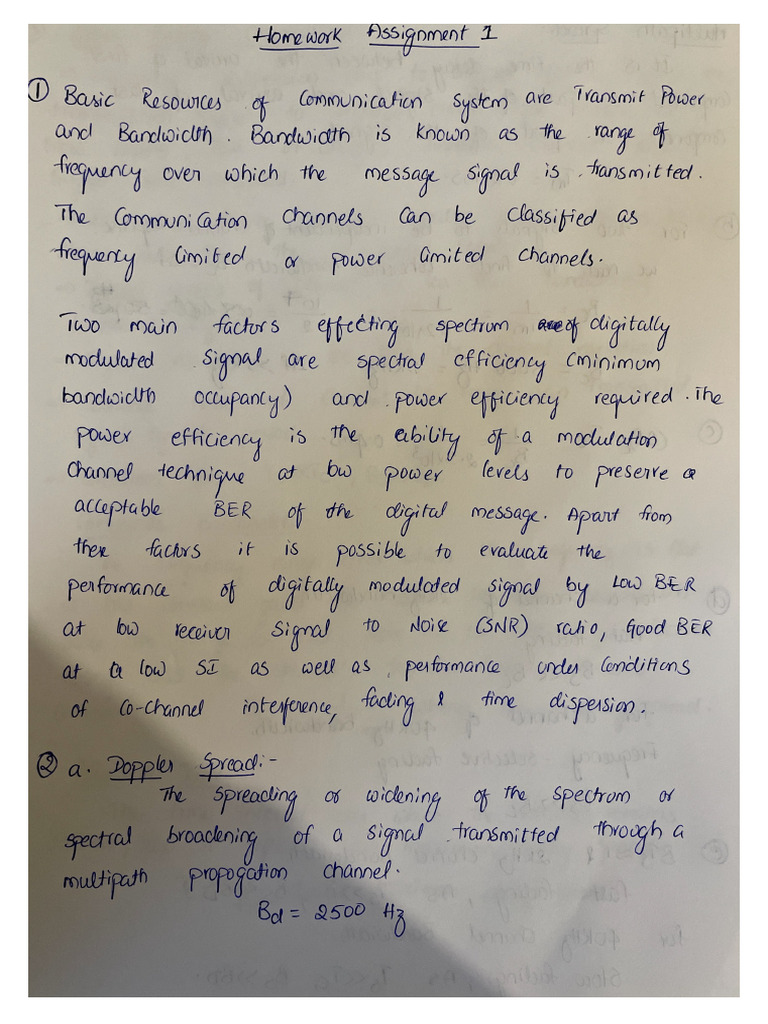 Homework Assignment 1
① Basic Resources of Communication system are Transmit Power
and Bandwidth. Bandwidth is known as the range of
frequency over which the message signal is transmitted.
The Communication channels can be classified as
frequency limited or power limited channels.
Two main factors effecting spectrum of digitally
modulated signal are spectral efficiency (minimum
bandwidth occupancy) and power efficiency required. The
power efficiency is the ability of a modulation
channel technique at low power levels to preserve a
acceptable BER of the digital message. Apart from
these factors it is possible to evaluate the
performance of digitally modulated signal by low BER
at low receiver Signal to Noise (SNR) ratio, Good BER
at a low SI as well as performance under Conditions
of Co-channel interference, fading & time dispersion.
② a. Doppler Spread:-
The Spreading or widening of the spectrum or
spectral broadening of a signal transmitted through a
multipath propogation channel.
Bd = 2500 Hz